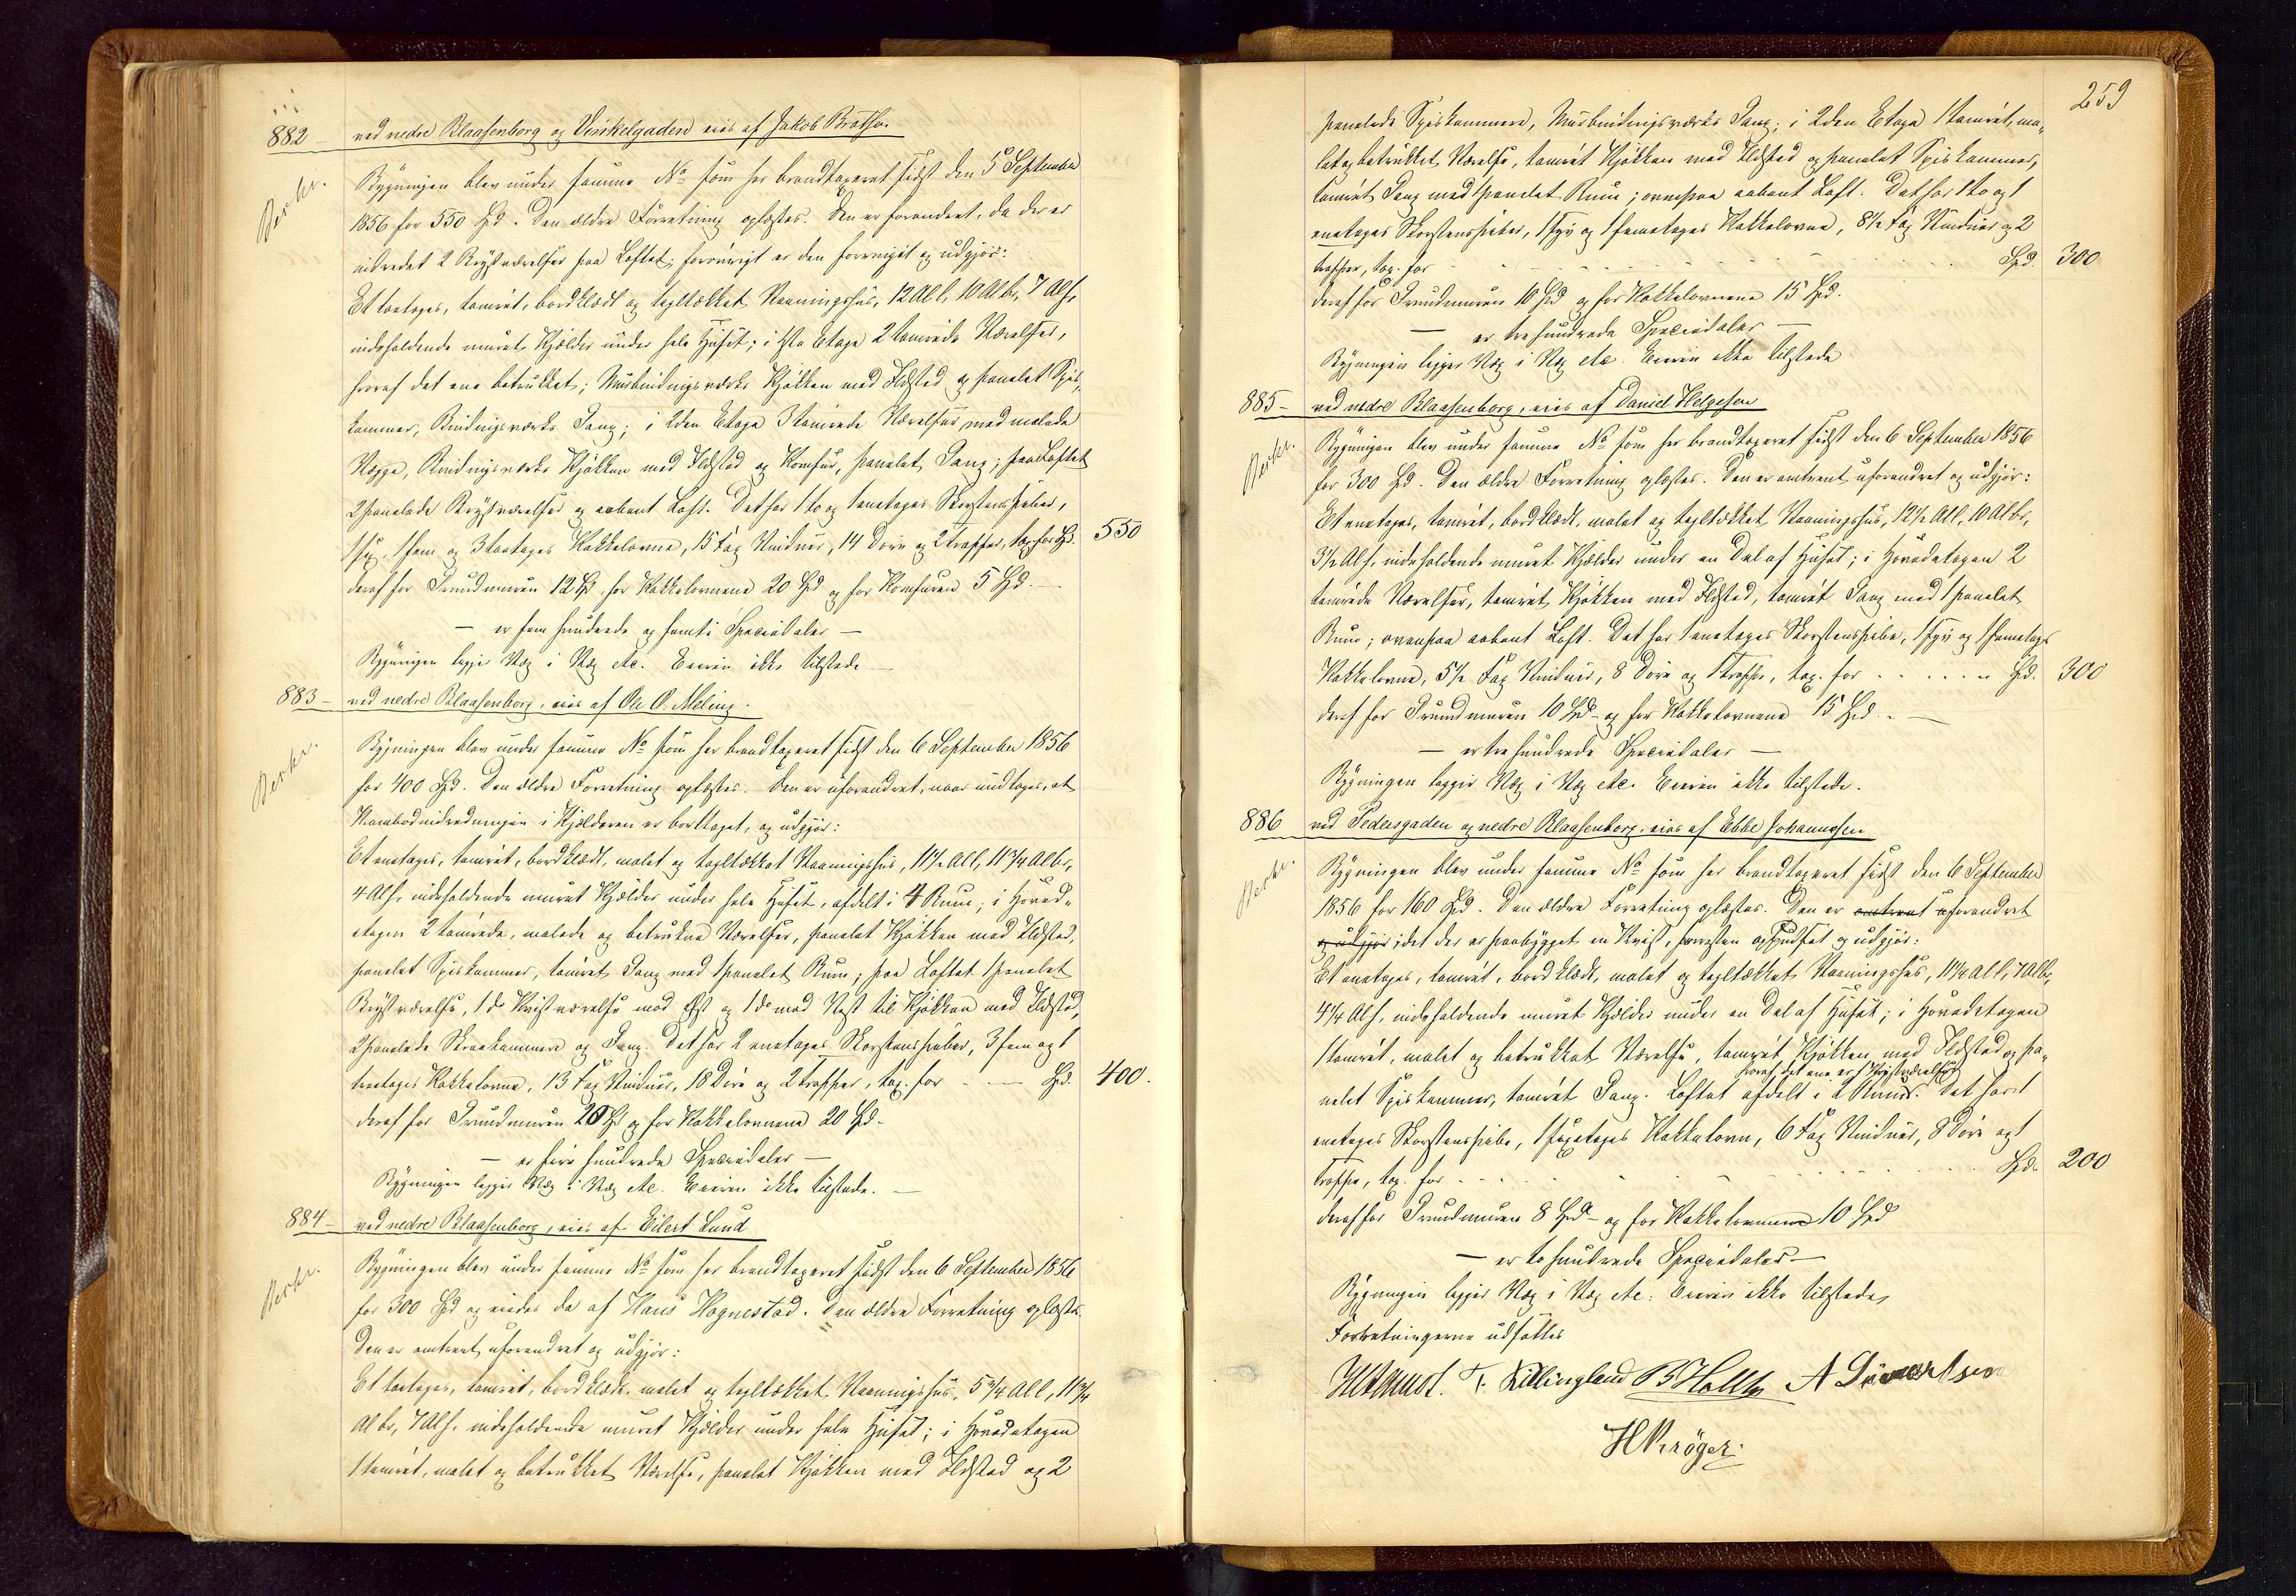 882 – ved nedre Blaasenborg og Vinkelgaden eies af Jakob Bratbo.
Berkr.
Bygningen blev under samme No som her brandtaxeret sidst den 5 September
1856 for 550 Spd. Den ældre Forretning oplæstes. Den er forandret, da der er
indredet 2 Brystværelser paa Loftet; forøvrigt er den forrnyet og udgjør:
Et toetages, tømret, bordklædt og tegltækket Vaaningshus, 12 Al l, 10 Al br, 7 Al h,
indeholdende muret Kjælder under hele Huset; i 1ste Etage 2 tømrede Værelser,
hvoraf det ene betrukket; Murbindingsværks Kjøkken med Ildsted og panelet Spis-
kammer, Bindingsværks Gang; i 2den Etage 3 tømrede Værelser med malede
Vægge, Bindingsværks Kjøkken med Ildsted og Komfur, panelet Gang; paa Loftet
2 panelede Brystværelser og aabent Loft. Det har 1 to og 1 enetages Skorstenspiber,
1 sex, 1 fem og 3 toetages Kakkelovne, 15 Fag Vinduer, 14 Døre og 2 Trapper, tax. for Spd. 550
deraf for Grundmuren 12 Spd, for Kakkelovnene 20 Spd og for Komfuren 5 Spd. –
– er fem hundrede og femti Speciedaler –
Bygningen ligger Væg i Væg etc. Eieren ikke tilstede –
883 – ved nedre Blaasenborg, eies af Ole O. Meling.
Berkr.
Bygningen blev under samme No som her brandtaxeret sidst den 6 September 1856
for 400 Spd. Den ældre Forretning oplæstes. Den er uforandret, naar undtages, at
Krambodindredningen i Kjælderen er borttaget, og udgjør:
Et enetages, tømret, bordklædt, malet og tegltækket Vaaningshus, 11½ Al l, 11¾ Al br,
4 Al h, indeholdende muret Kjælder under hele Huset, afdelt i 4 Rum; i Hoved-
etagen 2 tømrede, malede og betrukne Værelser, panelet Kjøkken med Ildsted,
panelet Spiskammer, tømret Gang med 1 panelet Rum; paa Loftet 1 panelet
Brystværelse, 1 do Kvistværelse mod Øst og 1 do mod Vest til Kjøkken med Ildsted,
2 panelede Skraakammere og Gang. Det har 2 enetages Skorstenspiber, 3 fem og 1
treetages Kakkelovne, 13 Fag Vinduer, 18 Døre og 2 Trapper, tax. for - - - Spd. 400.
deraf for Grundmuren 20 Spd og for Kakkelovnene 20 Spd –
– er fire hundrede Speciedaler –
Bygningen ligger Væg i Væg etc. Eieren ikke tilstede. –
884 – ved nedre Blaasenborg, eies af Eilert Lund
Berkr.
Bygningen blev under samme No som her brandtaxeret sidst den 6 September 1856
for 300 Spd og eiedes da af Hans Hognestad. Den ældre Forretning oplæstes.
Den er omtrent uforandret og udgjør:
Et toetages, tømret, bordklædt, malet og tegltækket Vaaningshus, 5¾ Al l, 11¾
Al br, 7 Al h, indeholdende muret Kjælder under hele Huset; i Hovedetagen
1 tømret, malet og betrukket Værelse, panelet Kjøkken med Ildsted og 2
259
panelede Spiskammere, Murbindingsværks Gang; i 2den Etage 1 tømret, ma-
let og betrukket Værelse, tømret Kjøkken med Ildsted og panelet Spiskammer,
tømret Gang med 1 panelet Rum; ovenpaa aabent Loft. Det har 1 to og 1
enetages Skorstenspiber, 1 fyr og 1 femetages Kakkelovne, 8½ Fag Vinduer og 2
Trapper, tax. for - - - Spd. 300
deraf for Grundmuren 10 Spd og for Kakkelovnene 15 Spd.
– er tre hundrede Speciedaler –
Bygningen ligger Væg i Væg etc. Eieren ikke tilstede
885 – ved nedre Blaasenborg, eies af Daniel Helgesen
Berkr.
Bygningen blev under samme No som her brandtaxeret sidst den 6 September 1856
for 300 Spd. Den ældre Forretning oplæstes. Den er omtrent uforandret og udgjør:
Et enetages, tømret, bordklædt, malet og tegltækket Vaaningshus, 12½ Al l, 10 Al br,
3½ Al h, indeholdende muret Kjælder under en Del af Huset; i Hovedetagen 2
tømrede Værelser, tømret Kjøkken med Ildsted, tømret Gang med 1 panelet
Rum; ovenpaa aabent Loft. Det har 1 enetages Skorstenspibe, 1 fyr og 1 femetages
Kakkelovne, 5½ Fag Vinduer, 8 Døre og 1 Trappe, tax. for - - - Spd. 300
deraf for Grundmuren 10 Spd – og for Kakkelovnene 15 Spd. –
– er tre hundrede Speciedaler –
Bygningen ligger Væg i Væg etc. Eieren ikke tilstede.
886 ved Pedersgaden og nedre Blaasenborg, eies af Ebbe Johannesen
Berkr.
Bygningen blev under samme No som her brandtaxeret sidst den 6 September
1856 for 160 Spd. Den ældre Forretning oplæstes. Den er omtrent uforandret
og udgjør idet der er paabygget en Kvist, forresten oppudset og udgjør:
Et enetages, tømret, bordklædt, malet og tegltækket Vaaningshus, 11¼ Al l, 7 Al br,
4¼ Al h, indeholdende muret Kjælder under en Del af Huset; i Hovedetagen
1 tømret, malet og betrukket Værelse, tømret Kjøkken med Ildsted og pa-
hvoraf det ene er 1 Kvistværelse
nelet Spiskammer, tømret Gang. Loftet afdelt i 2 Rum. Det har 1
enetages Skorstenspibe, 1 sexetages Kakkelovn, 6 Fag Vinduer, 8 Døre og 1
Trappe, tax. for - - - Spd. 200
deraf for Grundmuren 8 Spd – og for Kakkelovnen 10 Spd
– er to hundrede Speciedaler –
Bygningen ligger Væg i Væg etc. Eieren ikke tilstede,
Forretningerne udsattes
T. Killingland B Holst A Sivertsen
H Krøger.